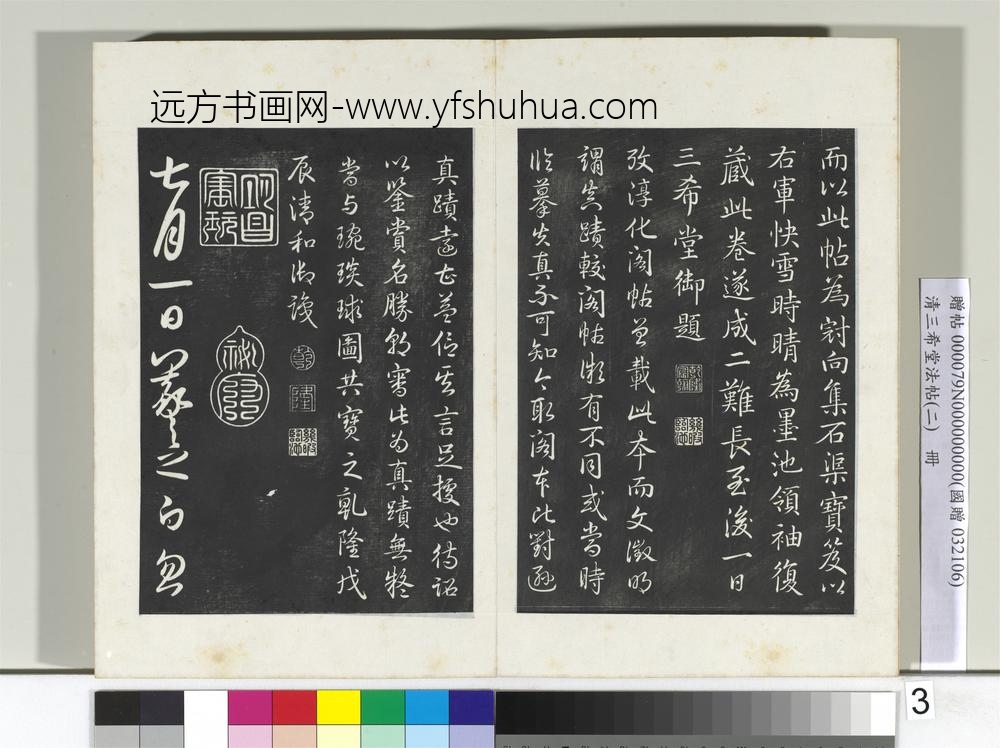 远方书画网-www.yfshuhua.com
而以此帖為對向集石渠寶笈以
右軍快雪時晴為墨池領袖復
藏此卷遂成二難長至後一日
三希堂御題
攷淳化閣帖曾載此本而文徵明
謂真蹟較閣帖微有不同或當時
臨摹失真不可知今取閣本比對遜
真蹟遠甚益信其言足據也待詔
以鑒賞名勝朝審此為真蹟無疑
當与琬琰球圖共寶之乾隆戊
辰清和御識
乾
隆
七月一日羲之白忽
贈帖 000079N000000000(國贈 032106)
清三希堂法帖(二) 冊
3